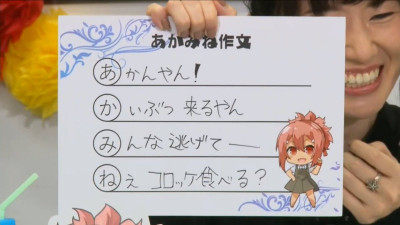 あかみね作文
あかんやん!
かいぶつ来るやん
みんな逃げてー
ねぇコロッケ食べる?